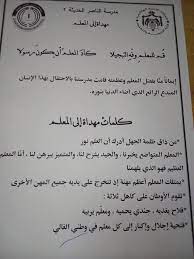 مدرسة الناصر الحديثة ٢
مهداة إلى المعلم
قم للمعلم وفه التبجيلا كاد المعلم أن يكون رسولا
إيماناً منا بفضل المعلم وعظمته قامت مدرستنا بالاحتفال بهذا الإنسان
المبدع الرائع الذي أضاء الدنيا بنوره.
كلمات مهداة إلى المعلم
- من ذاق ظلمة الجهل أدرك أن العلم نور
- المعلم المتواضع يخبرنا، والجيد يشرح لنا، والمتميز يبرهن لنا، أما المعلم
العظيم فهو الذي يلهمنا.
- يمتلك المعلم أعظم مهنة إذ تتخرج على يديه جميع المهن الأخرى
- تقوم الأوطان على كاهل ثلاثة:
- فلاح يغذيه، جندي يحميه، ومعلم يربيه
- فتحية إجلال وإكبار إلى كل معلم في وطني الغالي